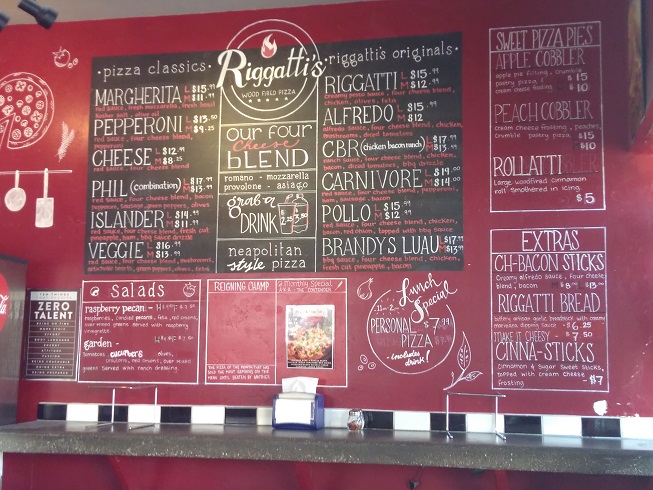 pizza classics.
MARGHERITA L $15.99 M $11.99
red sauce, fresh mozzarella, fresh basil
kosher salt, olive oil
PEPPERONI L $13.50 M $9.25
red sauce, four cheese blend,
pepperoni
CHEESE L $12.99 M $8.25
red sauce, four cheese blend
PHIL (combination) L $17.99 M $13.99
red sauce, four cheese blend, bacon
ISLANDER L $14.99 M $11.99
red sauce, four cheese blend, fresh cut
pineapple, ham, bbq sauce drizzle
VEGGIE L $16.99 M $13.99
red sauce, four cheese blend, mushrooms,
Riggatti's
WOOD FIRED PIZZA
our four
cheese
bLEND
romano - mozzarella
provolone - asiago
grab a
DRINK
neapolitan
style pizza
riggatti's originals.
RIGGATTI L $15.99
creamy pesto sauce, four cheese blend,
chicken, olives, feta
ALFREDO L $15.99 M $12.99
alfredo sauce, four cheese blend, chicken,
mushrooms, diced tomatoes
CBR (chicken bacon ranch) L $17.99 M $13.99
ranch sauce, four cheese blend, chicken,
bacon, diced tomatoes, bbq drizzle
CARNIVORE L $19.00 M $14.00
red sauce, four cheese blend, pepperoni,
ham, sausage, bacon
POLLO L $15.99 M $12.99
red sauce, four cheese blend, chicken,
bacon, red onion, topped with bbq sauce
BRANDY'S LUAU L $17.99 M $13.99
bbq sauce, four cheese blend, chicken,
fresh cut pineapple, bacon
SWEET PIZZA PIES
APPLE COBBLER
apple pie filling, crumble,
pastry pizza,
cream cheese frosting $15
$10
PEACH COBBLER
cream cheese frosting, peaches,
crumble pastry pizza $15
$10
ROLLATTI
Large woodfired cinnamon
roll smothered in icing
$5
EXTRAS
CH-BACON STICKS
Creamy alfredo sauce, four cheese
blend, bacon
RIGGATTI BREAD
buttery artisan garlic breadstick with creamy
marinara dipping sauce - $6.25
make it cheesy - $7.50
CINNA-STICKS
Cinnamon & Sugar Sweet Sticks,
topped with cream cheese
frosting $7
TEN THINGS
ZERO
TALENT
BEING ON TIME
BODY LANGUAGE
Salads
raspberry pecan -
raspberries, candied pecans, feta, red onions,
over mixed greens served with raspberry
vinaigrette
garden -
tomatoes, cucumbers, olives,
croutons, red onions, over mixed
greens served with ranch dressing
REIGNING CHAMP
Monthly Special
A.K.A. THE CONTENDER
THE PIZZA OF THE MONTH THAT HAS
SOLD THE MOST CONTINUES ON THE
MENU UNTIL BEATEN BY ANOTHER
Lunch
Special
11-2
PERSONAL $7.99
PIZZA
-includes
drink!